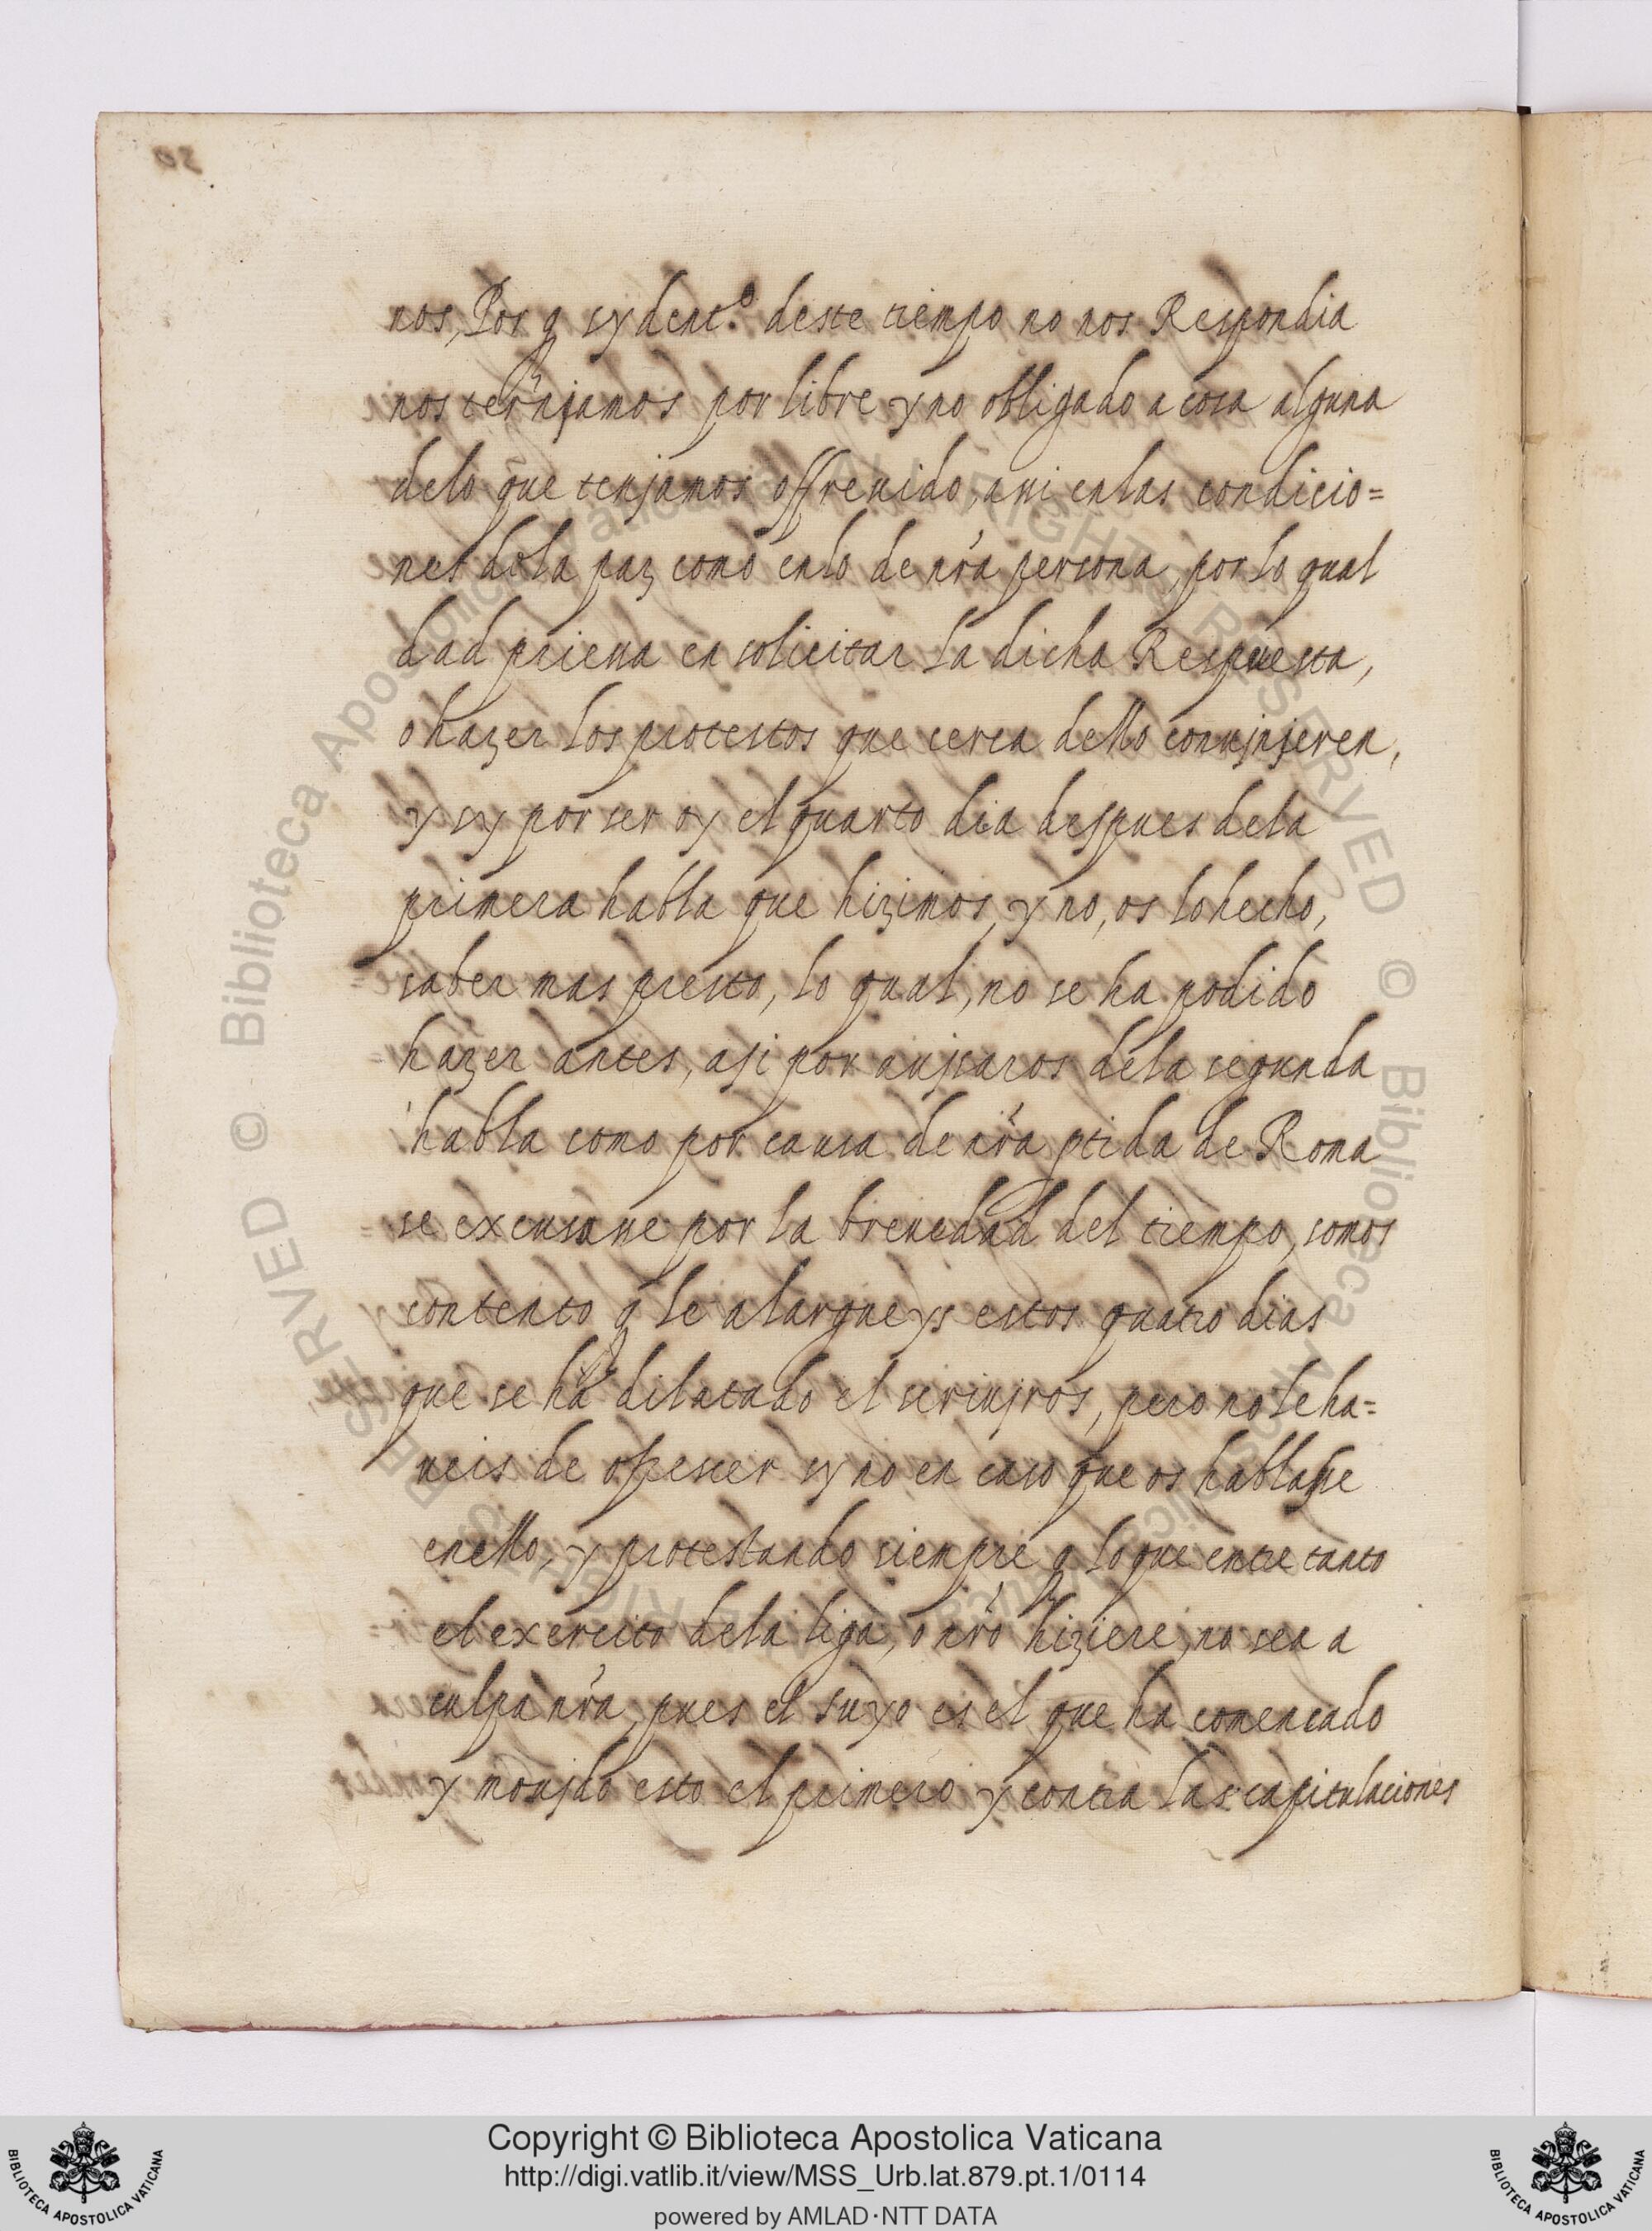 nos, Por q sy dent.º deste tiempo no nos Respondia
nos ternjamos por libre y no obligado a cosa alguna
delo que tenjamos offrescido, assi enlas condicio=
nes dela paz como enlo de nr̃a persona, por lo qual
dad priessa en solicitar la dicha Respuesta,
o hazer los protestos que cerca dello conujnjeren,
y sy por ser oy el quarto dia despues dela
primera habla que hizimos, y no, os lo hecho,
saber mas presto, lo qual, no se ha podido
hazer antes, asi por aujsaros dela segunda
habla como por causa de nr̃a ptida de Roma
se excusasse por la breuedad del tiempo, somos
contento q le alargueys estos quatro dias
que se ha dilatado el scriujros, pero no le ha=
ueis de ofrescer sy no en caso que os hablasse
enello, y protestando siempre q lo que entre tanto
el exercito dela liga, o nr̃o hiziere, no sea a
culpa nr̃a, pues el suyo es el que ha comencado
y mouido esto el primero y contra las capitulaciones
Copyright © Biblioteca Apostolica Vaticana
http://digi.vatlib.it/view/MSS_Urb.lat.879.pt.1/0114
powered by AMLAD·NTT DATA